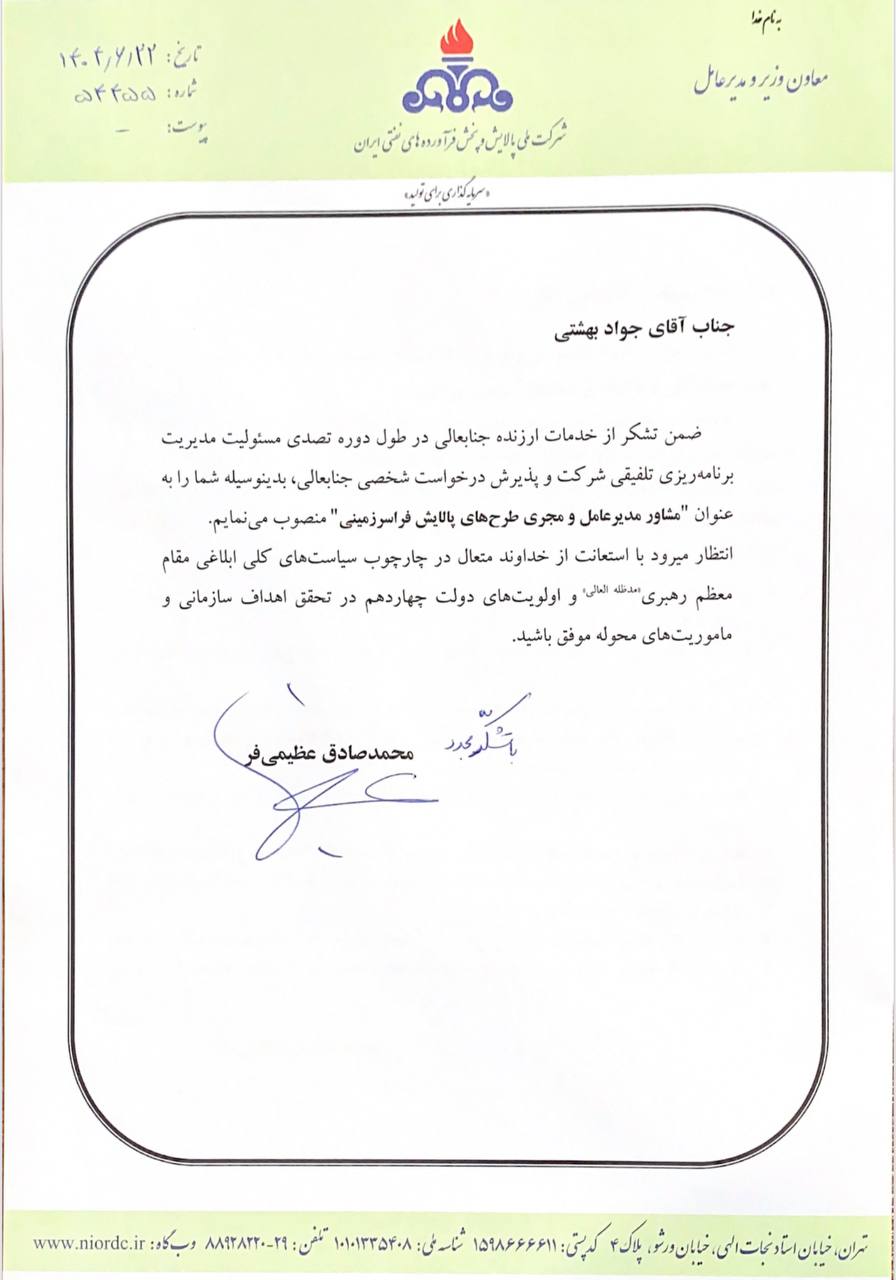 به نام خدا
معاون وزیر و مدیرعامل
شرکت ملی پالایش و پخش فرآورده های نفتی ایران
تاریخ: ۱۴۰۴/۶/۲۲
شماره: ۵۴۴۵۵
پیوست: -
«سرمایه گذاری برای تولید»
جناب آقای جواد بهشتی
ضمن تشکر از خدمات ارزنده جنابعالی در طول دوره تصدی مسئولیت مدیریت
برنامه‌ریزی تلفیقی شرکت و پذیرش درخواست شخصی جنابعالی، بدینوسیله شما را به
عنوان "مشاور مدیرعامل و مجری طرح‌های پالایش فراسرزمینی" منصوب می‌نمایم.
انتظار میرود با استعانت از خداوند متعال در چارچوب سیاست‌های کلی ابلاغی مقام
معظم رهبری«مدظله العالی» و اولویت‌های دولت چهاردهم در تحقق اهداف سازمانی و
ماموریت‌های محوله موفق باشید.
با تشکّر مجدد
محمدصادق عظیمی‌فر
تهران، خیابان استاد نجات الهی، خیابان ورشو، پلاک ۴ کد پستی: ۱۵۹۸۶۶۶۶۱۱ شناسه ملی: ۱۰۱۰۱۳۳۵۴۰۸ تلفن: ۲۹-۸۸۹۲۸۲۲۰ وب گاه: www.niordc.ir